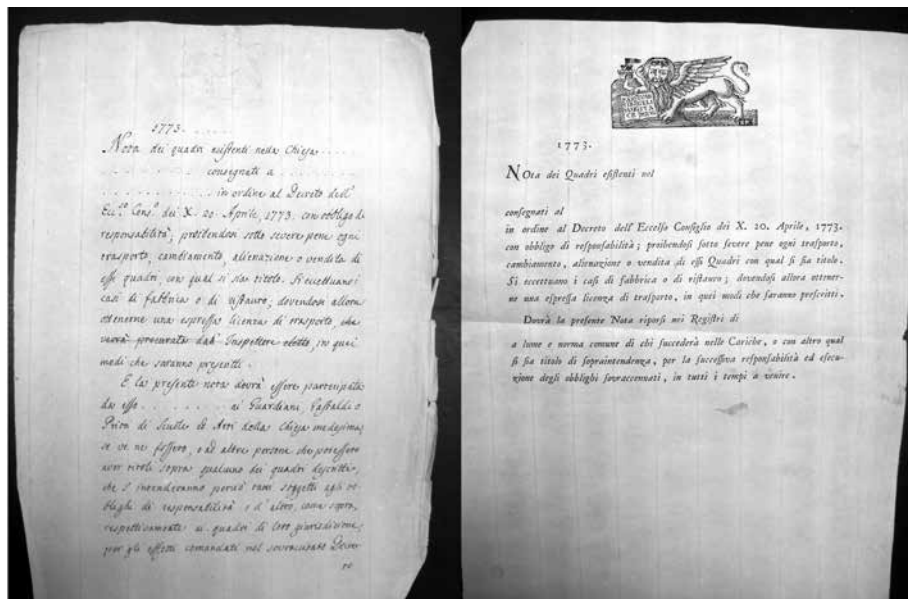 1773. . . . . .
Nota dei quadri esistenti nella Chiesa . . . . .
. . . . . . . . . . consegnati a . . . . . . . . . .
. . . . . . . . . . in ordine al Decreto dell'
Ecc.so Cons.o dei X. 20. Aprile, 1773. con obbligo di
responsabilità; proibendosi sotto severe pene ogni
trasporto, cambiamento, alienazione o vendita di
essi quadri, con qual si sia titolo. Si eccettuano i
casi di fabbrica o di ristauro; dovendosi allora
ottenerne una espressa licenza di trasporto, che
verrà procurata dall' Inspettore eletto, in quei
modi che saranno prescritti.
E la presente nota dovrà essere partecipata
da esso . . . . . . . . ni Guardiani, Gastaldi o
Priori di Scuole ed Arti della Chiesa medesima,
se ve ne fossero, e ad altre persone che potessero
aver titoli sopra qualcuno dei quadri descritti,
che s'intenderanno perciò rasi soggetti agli ob-
blighi di responsabilità e d'altro, come sopra,
respettivamente ai quadri di loro giurisdizione;
per gli effetti comandati nel sovraccitato Decre-
to
1773.
NOta dei Quadri esistenti nel
consegnati al
in ordine al Decreto dell'Eccelso Consiglio dei X. 20. Aprile, 1773.
con obbligo di responsabilità; proibendosi sotto severe pene ogni trasporto,
cambiamento, alienazione o vendita di essi Quadri con qual si sia titolo.
Si eccettuano i casi di fabbrica o di ristauro; dovendosi allora ottener-
ne una espressa licenza di trasporto, in quei modi che saranno prescritti.
Dovrà la presente Nota riporsi nei Registri di
a lume e norma comune di chi succederà nelle Cariche, o con altro qual
si sia titolo di sopraintendenza, per la successiva responsabilità ed esecu-
zione degli obblighi sovraccennati, in tutti i tempi a venire.